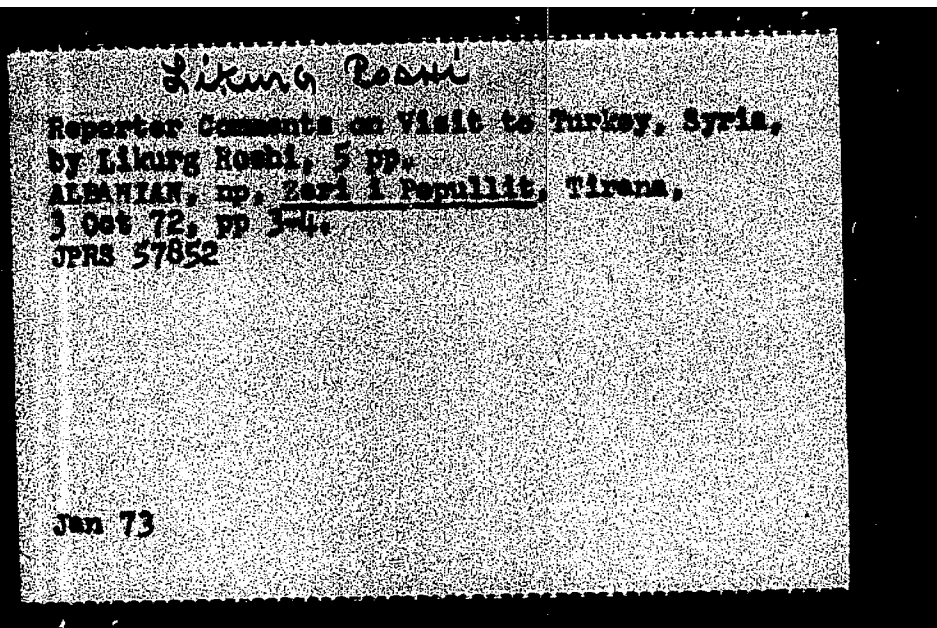 Likurg Roshi
Reporter Comments on Visit to Turkey, Syria,
by Likurg Roshi, 5 pp.
ALBANIAN, np, Zeri i Popullit, Tirana,
3 Oct 72, pp 3-4.
JPRS 57852
Jan 73